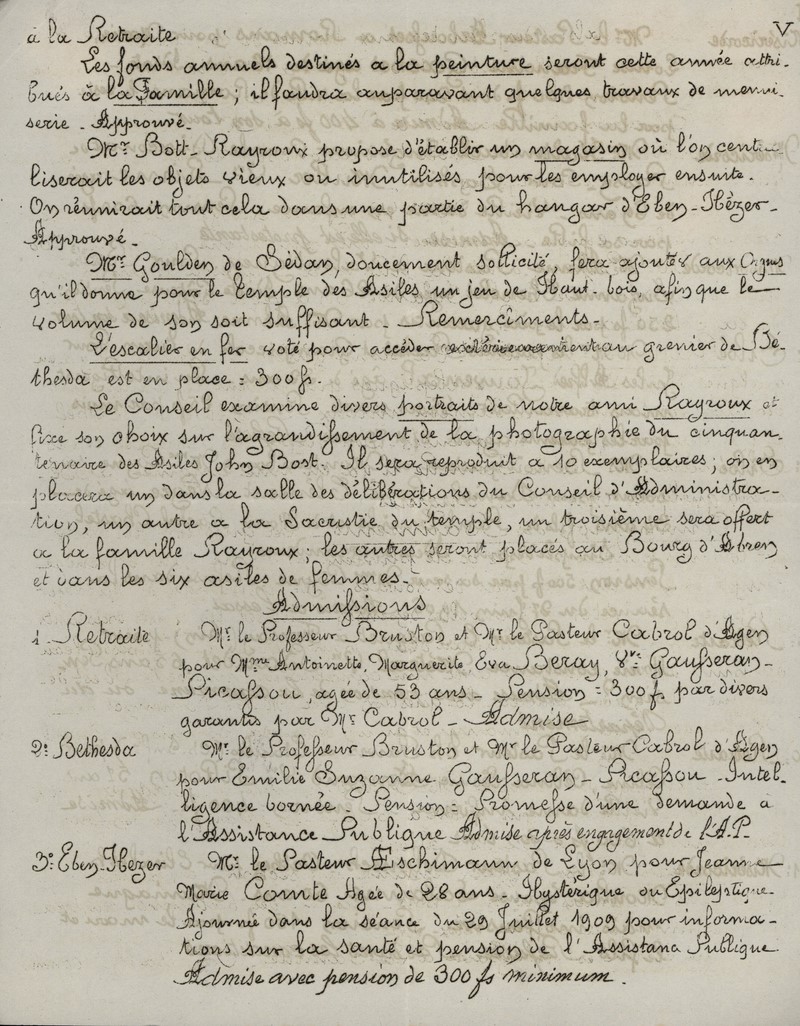 à la Retraite
V
Les fonds annuels destinés à la peinture seront cette année attri-
bués à la Famille ; il faudra auparavant quelques travaux de menui-
serie. Approuvé.
Mr Bott-Rayroux propose d'établir un magasin où l'on cent-
liserait les objets vieux ou inutilisés pour les employer ensuite.
On réunirait tout cela dans une partie du hangar d'Eben-Hézer-
Approuvé.
Mr Goulden de Sédan, doucement sollicité, fera ajouter aux Orgues
qu'il donne pour le temple des Asiles un jeu de Haut-bois, afin que le
volume de son soit suffisant. Remerciments.
L'escalier en fer voté pour accéder au grenier de Bé-
thesda est en place = 300 f.
Le Conseil examine divers portraits de notre ami Rayroux et
fixe son choix sur l'agrandissement de la photographie du cinquan-
tenaire des Asiles John Bost. Il sera reproduit à 10 exemplaires ; on en
placera un dans la salle des délibérations du Conseil d'Administra-
tion, un autre à la Sacristie du temple, un troisième sera offert
à la famille Rayroux ; les autres seront placés au Bourg d'Abren
et dans les six asiles de femmes.
Admissions
1 Retraite Mr. le Professeur Bruston et Mr le Pasteur Cabrol d'Agen
pour Mme Antoinette, Marguerite Eva Beray, Vve Gausseran-
Picassou, agée de 53 ans. Pension = 300 f. par divers
garantis par Mr Cabrol - Admise
2° Bethesda Mr. le Professeur Bruston et Mr le Pasteur Cabrol d'Agen
pour Emilie Suzanne Gausseran-Picassou - Intel-
ligence bornée - Pension = Promesse d'une demande à
l'Assistance Publique Admise après engagement de l'A.P.
3° Eben-Hezer Mr. le Pasteur Æschimann de Lyon pour Jeanne
Marie Comte Agée de 28 ans. Hystérique ou Epileptique.
Ajournée dans la séance du 29 Juillet 1909 pour informa-
tions sur la santé et pension de l'Assistance Publique
Admise avec pension de 300 fs minimum.